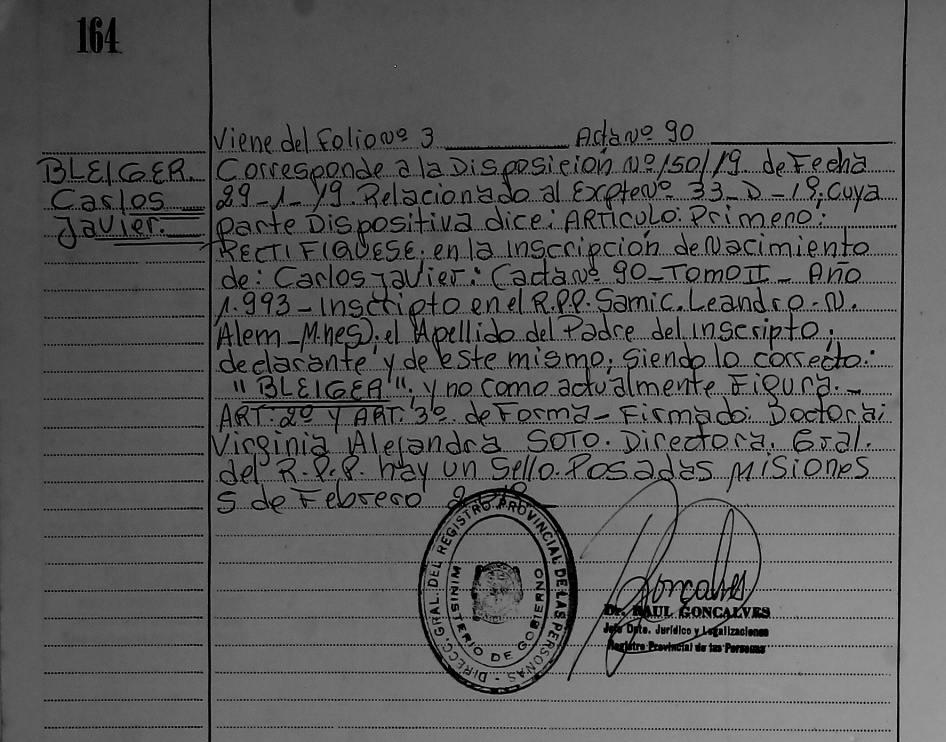 164
Viene del Folio Nº 3 Acta Nº 90
BLEIGER.
Carlos
Javier.
Corresponde a la Disposición Nº 150/19. de Fecha
29-1-19. Relacionado al Expte Nº 33-D-19; cuya
parte Dispositiva dice: ARTICULO: Primero:
RECTIFIQUESE: en la Inscripción de Nacimiento
de: Carlos Javier: (acta Nº 90-TOMO II- Año
1.993-Inscripto en el R.P.P. Samic. Leandro-N.
Alem-Mnes); el Apellido del Padre del inscripto;
declarante y de este mismo; siendo lo correcto:
"BLEIGER"; y no como actualmente Figura.-
ART: 2º Y ART: 3º. de Forma-Firmado: Doctora:
Virginia Alejandra SOTO. Directora. Gral.
del R.P.P. hay un Sello. Posadas Misiones
5 de Febrero
DIRECC. GRAL. DEL REGISTRO PROVINCIAL DE LAS PERSONAS -
MINISTERIO DE GOBIERNO
Goncalves
Dr. RAUL GONCALVES
Jefe Dpto. Jurídico y Legalizaciones
Registro Provincial de las Personas